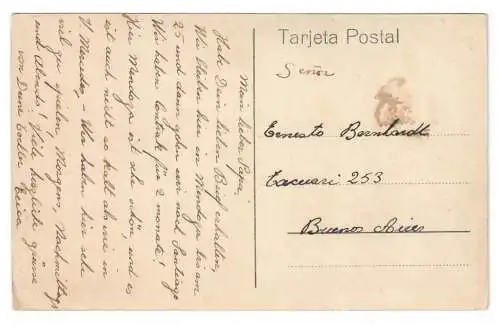 Mein lieber Papa!
Hab Dein lieben Brief erhalten,
Wir bleiben hier en Mendoza bis am
25 und dann gehen wir nach Santiago
Wir haben für 2 monate!
Hier Mendoza ist sehr schön, und es
ist auch nicht so kalt als wie in
V. Mercedes,- Wir haben hier sehr
viel zu spielen, Morgens, Nachmittags
und Abends! Viele herzliche grüsse
von Deine
Tarjeta Postal
Señor
Ernesto Bernhardt
Tacuari 253
Buenos Aires